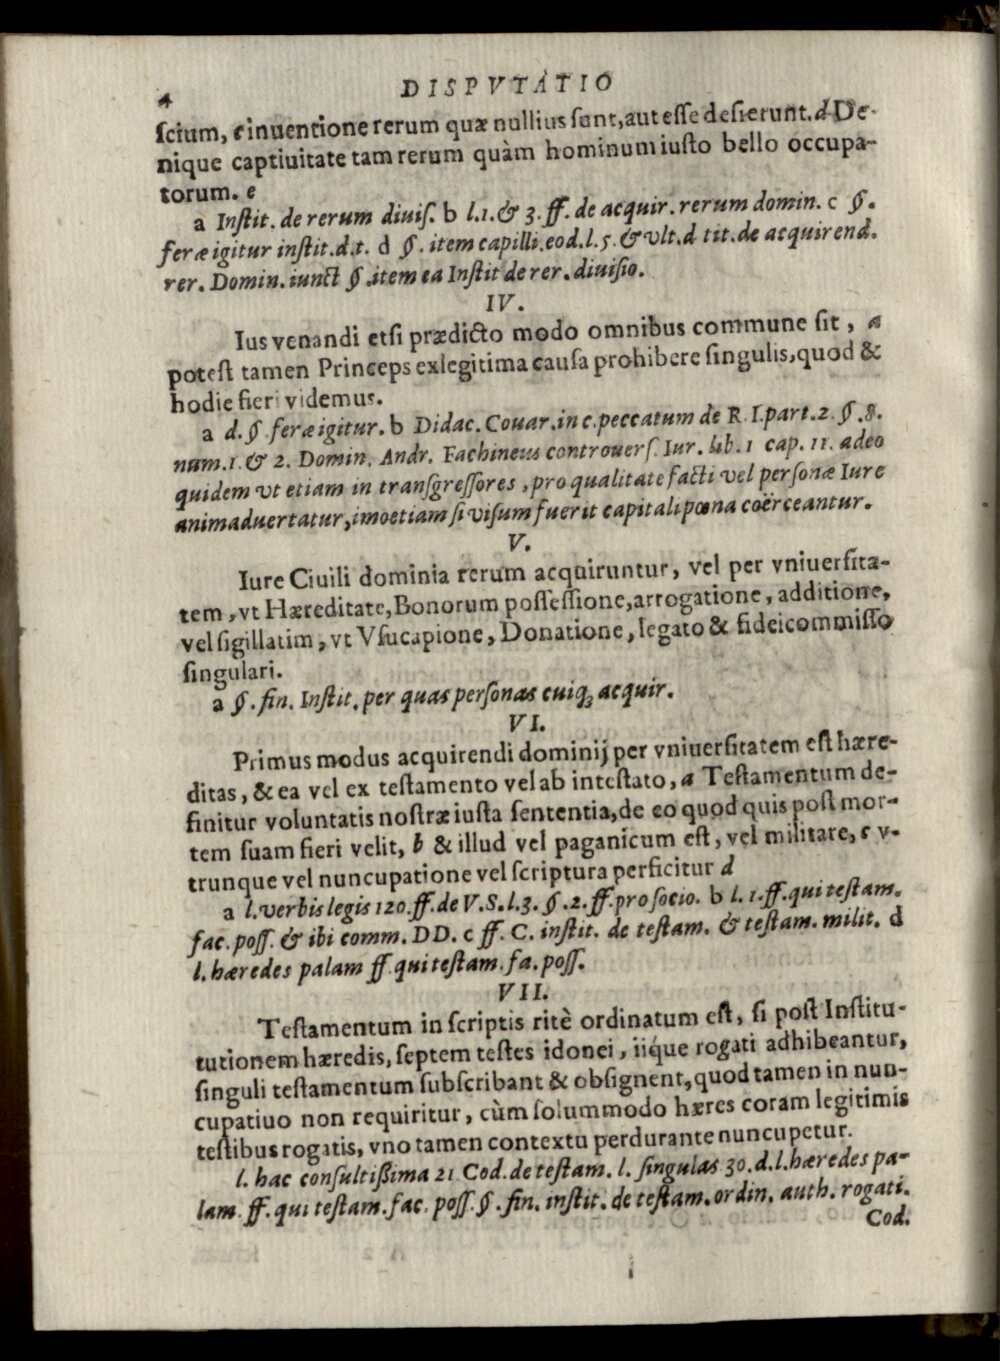 4 DISPVTATIO
ſcium, c inuentione rerum quæ nullius ſunt, aut eſſe deſierunt. d De-
nique captiuitate tam rerum quàm hominum iuſto bello occupa-
torum. e
a Inſtit. de rerum diuiſ. b l. 1. & 3. ff. de acquir. rerum domin. c §.
feræ igitur inſtit. d. t. d §. item capilli. eod. l. 5. & vlt. d tit. de acquirend.
rer. Domin. iunct §. item ea Inſtit de rer. diuiſio.
IV.
Ius venandi etſi prædicto modo omnibus commune ſit, a
poteſt tamen Princeps ex legitima cauſa prohibere ſingulis, quod &
hodie fieri videmus.
a d. §. feræ igitur. b Didac. Couar. in c. peccatum de R. I. part. 2. §. 8.
num. 1. & 2. Domin. Andr. Fachineus controuerſ. Iur. lib. 1 cap. 11. adeo
quidem vt etiam in tranſgreſſores, pro qualitate facti vel perſonæ Iure
animaduertatur, imo etiam ſi viſum fuerit capitali pœna coërceantur.
V.
Iure Ciuili dominia rerum acquiruntur, vel per vniuerſita-
tem, vt Hæreditate, Bonorum poſſeſſione, arrogatione, additione,
vel ſigillatim, vt Vſucapione, Donatione, legato & fideicommiſſo
ſingulari.
a §. fin. Inſtit. per quas perſonas cuiq; acquir.
VI.
Primus modus acquirendi dominij per vniuerſitatem eſt hære-
ditas, & ea vel ex teſtamento vel ab inteſtato, a Teſtamentum de-
finitur voluntatis noſtræ iuſta ſententia, de eo quod quis poſt mor-
tem ſuam fieri velit, b & illud vel paganicum eſt, vel militare, c v-
trunque vel nuncupatione vel ſcriptura perficitur d
a l. verbis legis 120. ff. de V. S. l. 3. §. 2. ff. pro ſocio. b l. 1. ff. qui teſtam.
fac. poſſ. & ibi comm. DD. c ff. C. inſtit. de teſtam. & teſtam. milit. d
l. hæredes palam ff. qui teſtam. fa. poſſ.
VII.
Teſtamentum in ſcriptis ritè ordinatum eſt, ſi poſt Inſtitu-
tutionem hæredis, ſeptem teſtes idonei, iique rogati adhibeantur,
ſinguli teſtamentum ſubſcribant & obſignent, quod tamen in nun-
cupatiuo non requiritur, cùm ſolummodo hæres coram legitimis
teſtibus rogatis, vno tamen contextu perdurante nuncupetur.
l. hac conſultiſſima 21 Cod. de teſtam. l. ſingulas 30. d. l. hæredes pa-
lam. ff. qui teſtam. fac. poſſ. §. fin. inſtit. de teſtam. ordin. auth. rogati.
Cod.